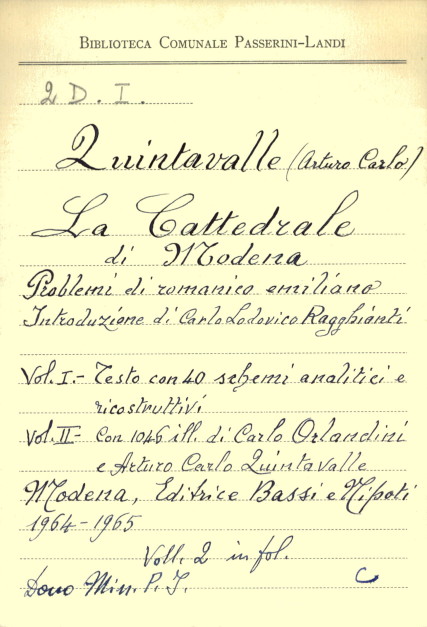 BIBLIOTECA COMUNALE PASSERINI-LANDI
2 D. I.
Quintavalle (Arturo Carlo)
La Cattedrale
di Modena
Problemi di romanico emiliano
Introduzione di Carlo Lodovico Ragghianti
Vol. I.- Testo con 40 schemi analitici e
ricostruttivi
Vol. II- Con 1046 ill. di Carlo Orlandini
e Arturo Carlo Quintavalle
Modena, Editrice Bassi e Nipoti
1964-1965
Voll. 2 in fol.
Dono Min. P. I. C